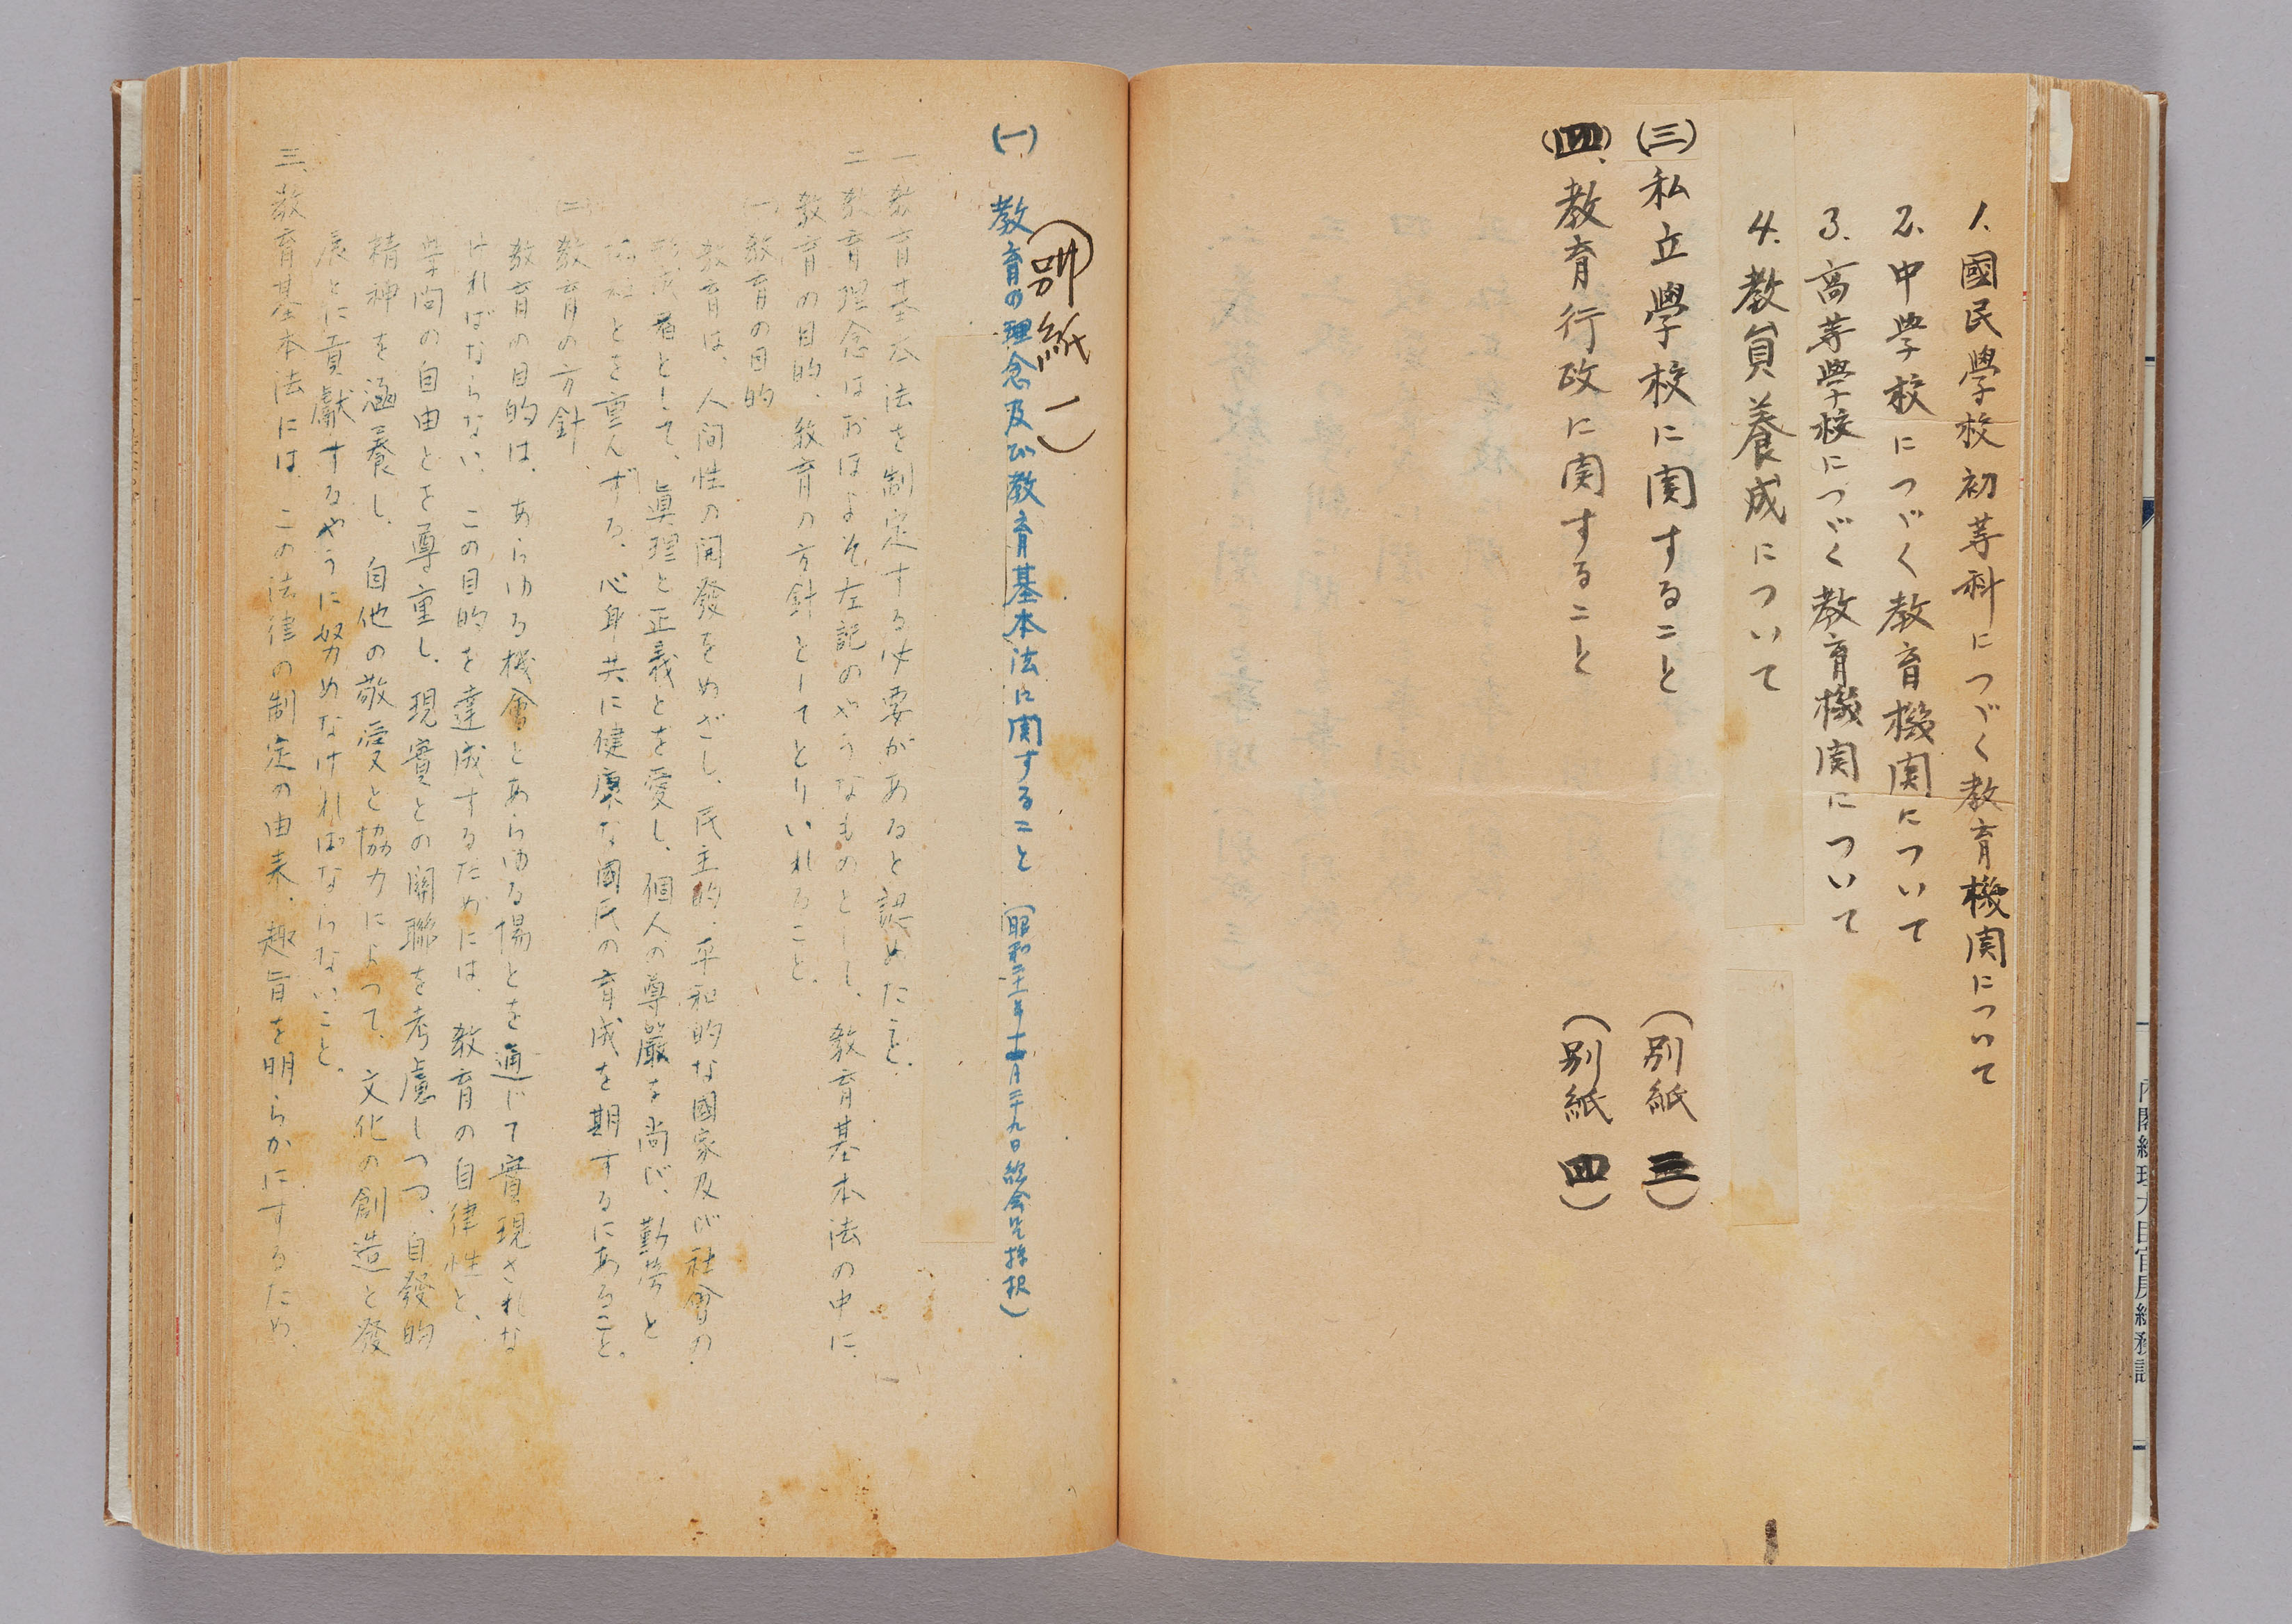 1.國民學校初等科につづく教育機関について
2.中学校につづく教育機関について
3.高等學校につづく教育機関について
4.教員養成について
(三)私立學校に関すること (別紙 三)
(四)、教育行政に関すること (別紙 四)
(別紙 一)
(一) 教育の理念及び教育基本法に関すること (昭和二十一年十一月二十九日総会ニ於テ採択)
一 教育基本法を制定する必要があると認めたこと。
二 教育理念はおほよそ左記のやうなものとし、教育基本法の中に、
教育の目的、教育の方針としてとりいれること。
(一)教育の目的
教育は、人間性の開發をめざし、民主的、平和的な國家及び社會の
形成者として、眞理と正義とを愛し、個人の尊嚴を尚び、勤勞と
協和とを重んずる、心身共に健康な國民の育成を期するにあること。
(二)教育の方針
教育の目的は、あらゆる機會とあらゆる場とを通じて實現されな
ければならない、この目的を達成するためには、教育の自律性と、
学問の自由とを尊重し、現實との關聯を考慮しつつ、自發的
精神を涵養し、自他の敬愛と協力によつて、文化の創造と發
展とに貢獻するやうに努めなければならないこと。
三、教育基本法には、この法律の制定の由来、趣旨を明らかにするため、
内閣総理大臣官房総務課